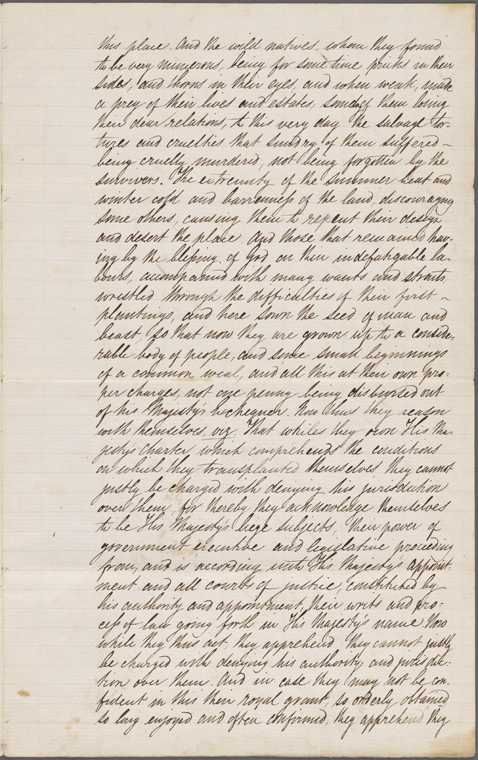 this place. And the wild natives, whom they found
to be very numerous, being for some time pricks in their
sides, and thorns in their eyes, and when weak, made
a prey of their lives and estates, some of them being
their dear relations, to this very day the salvage tor-
tures and cruelties that sundry of them suffered –
being cruelly murdered, not being forgotten by the
survivors. The extremity of the summer heat and
winter cold and barrenness of the land, discouraging
some others, causing them to repent their design
and desert the place. And those that remained hav-
ing by the blessing of God on their indefatigable la-
bours, accompanied with many wants and straits,
wrestled through the difficulties of their first –
plantings, and here sown the seed of man and
beast so that now they are grown up to a conside-
rable body of people, and some small beginnings
of a common weal, and all this at their own pro-
per charges, not one penny being disbursed out
of his Majesty's Exchequer. Now thus they reason
with themselves, viz. That whiles they own His Ma-
jesty's charter, which comprehends the conditions
on which they transplanted themselves they cannot
justly be charged with denying his jurisdiction
over them, for thereby they acknowledge themselves
to be His Majesty's liege subjects. Their power of
government executive and legislative proceeding
from, and is according unto His Majesty's appoint-
ment and all courts of justice, constituted by
his authority and appointment, their writs and pro-
cess of law going forth in His Majesty's name. Now
while they thus act, they apprehend they cannot justly
be charged with denying his authority and jurisdic-
tion over them. And in case they may not be con-
fident in this their royal grant, so orderly obtained
so long enjoyed and often confirmed, they apprehend they